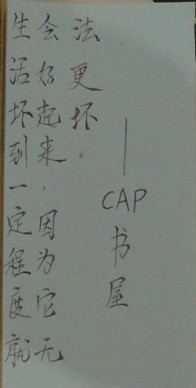 生活坏到一定程度就
会好起来，因为它无
法更坏。
——CAP书屋